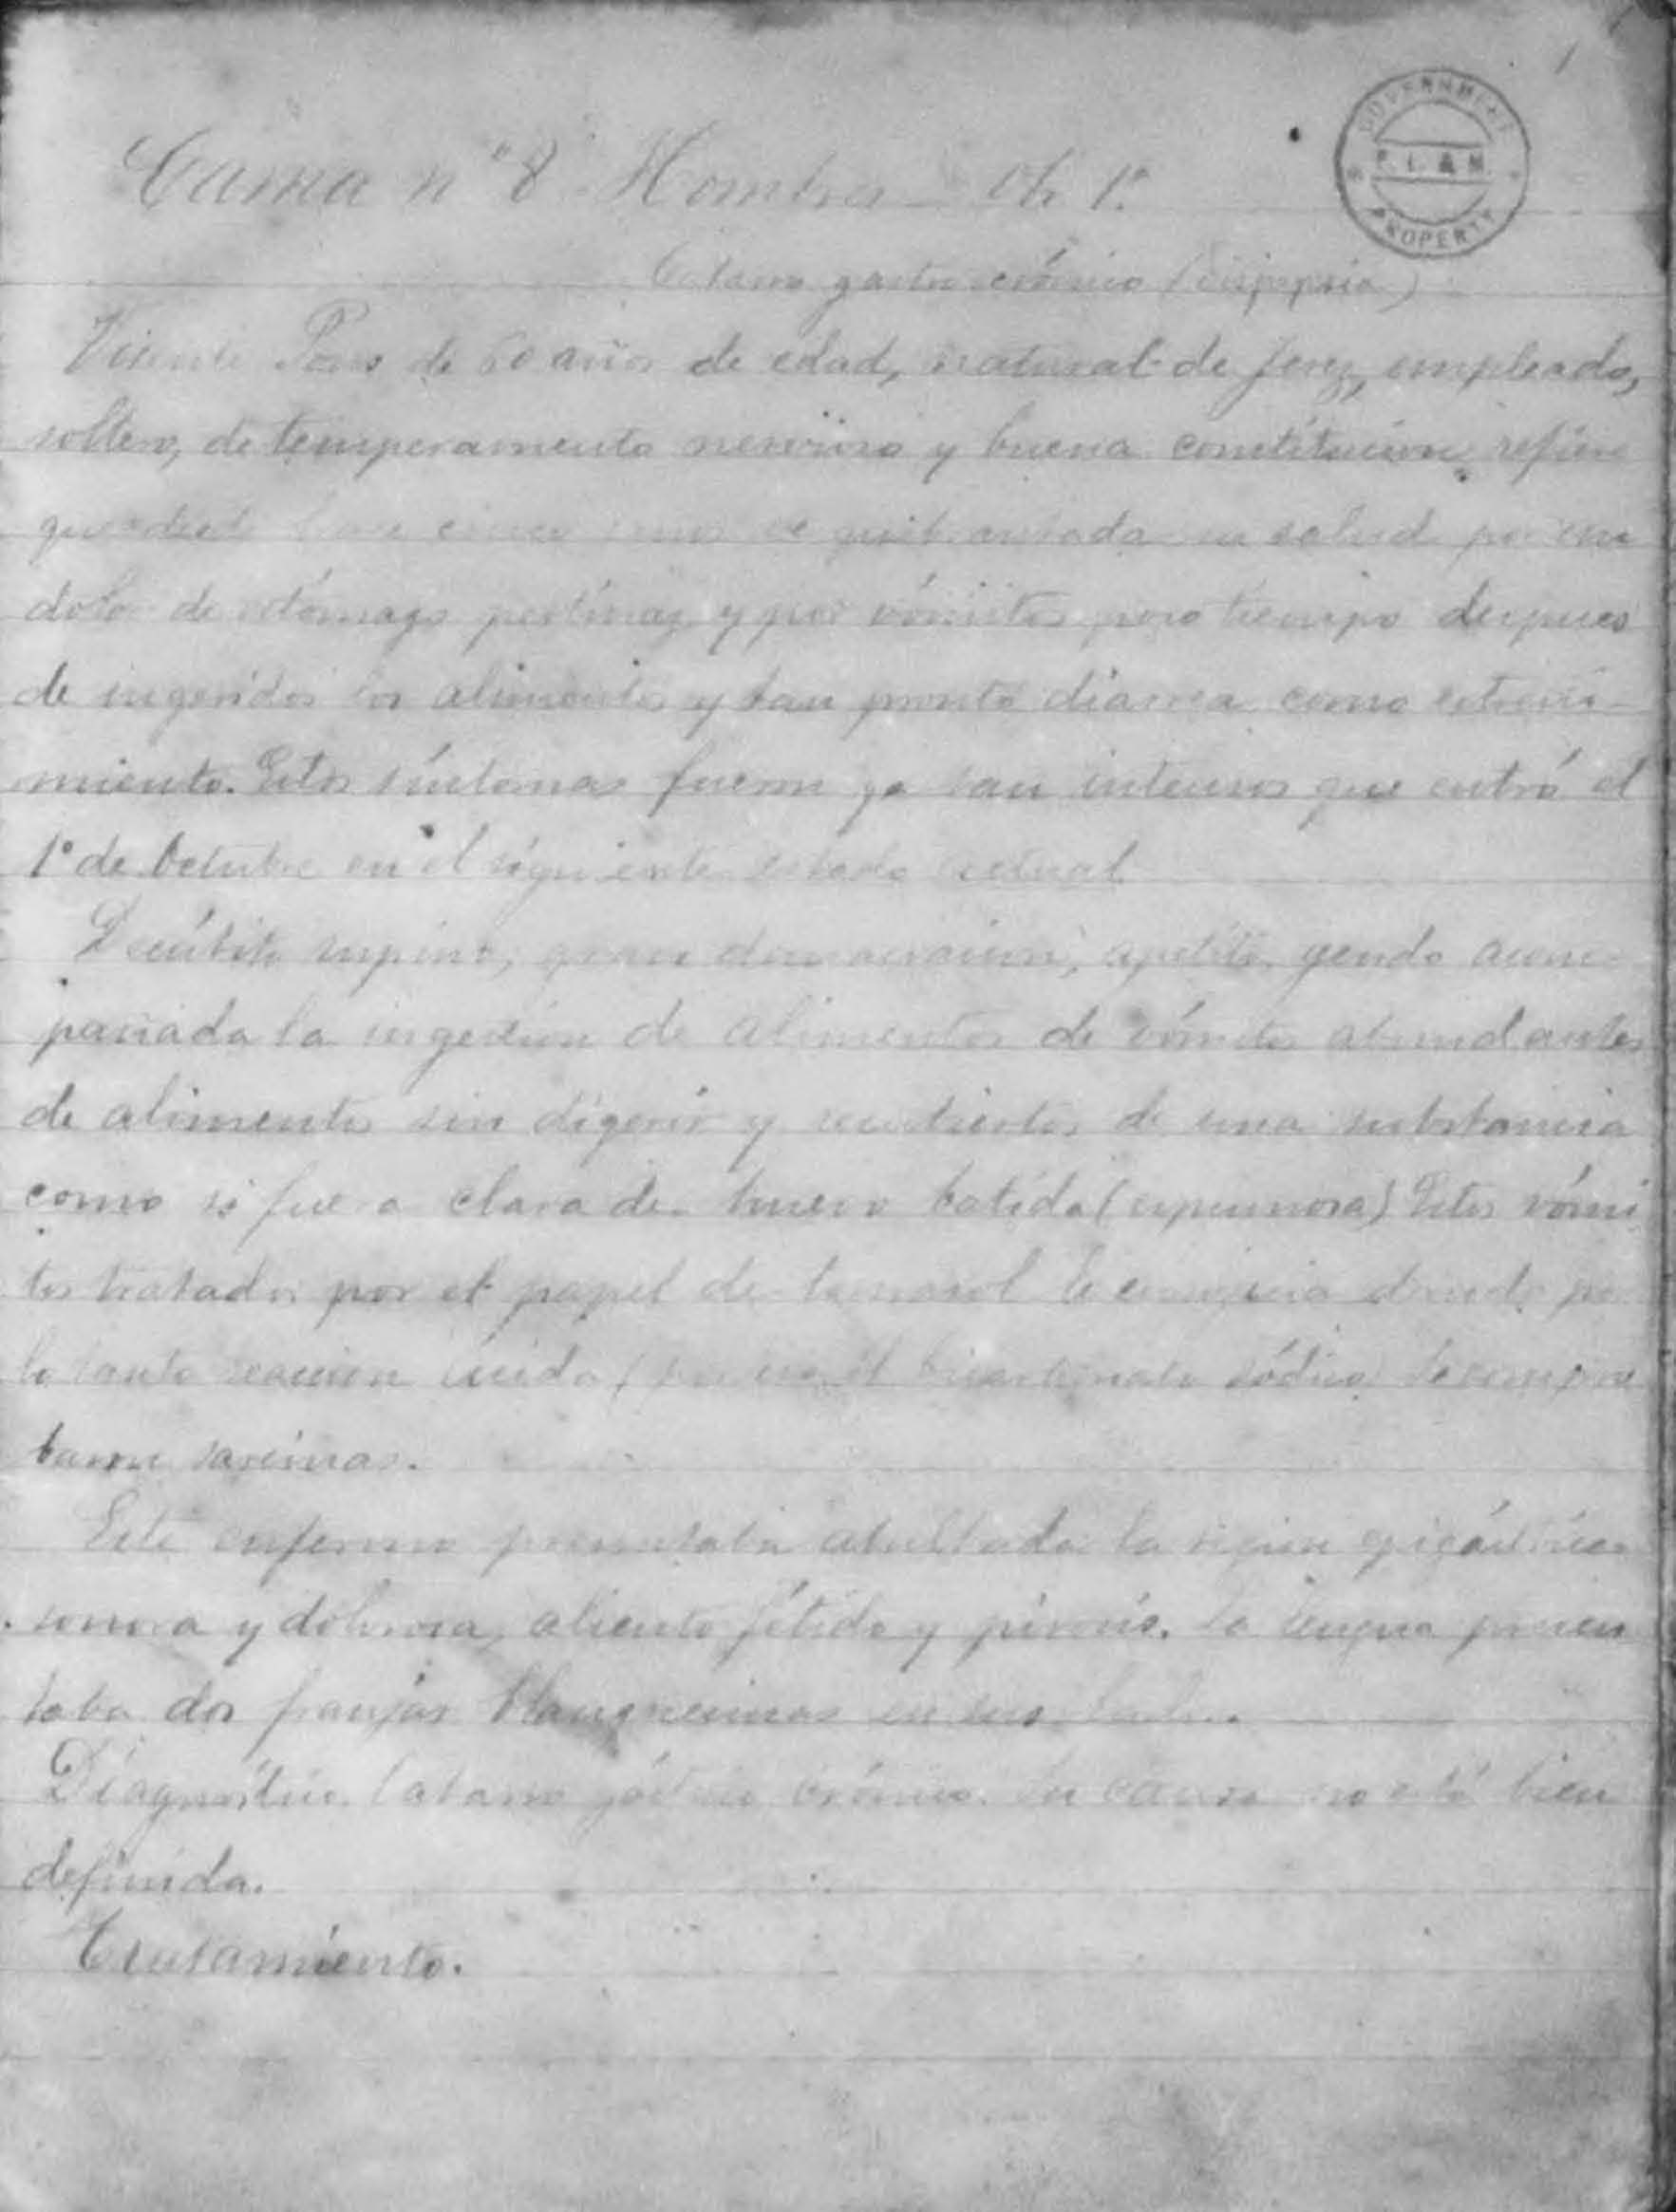 1
GOVERNMENT P.L.&M. PROPERTY
Cama nº 8 Hombres Ob. 1ª
Catarro gastro crónico (dispepsia)
Vicente Pons de 60 años de edad, natural de Jerez, empleado,
soltero, de temperamento nervioso y buena constitución, refiere
que desde hace cinco años se quebrantada su salud por un
dolor de estómago pertinaz y por vómitos poco tiempo despues
de ingeridos los alimentos y tan pronto diarrea como estreñi-
miento. Estos síntomas fueron ya tan intensos que entró el
1º de Octubre en el siguiente estado actual
Decúbito supino, gran demacración, apetito, yendo acom-
pañada la ingestión de alimentos de vómitos abundantes
de alimentos sin digerir y recubiertos de una substancia
como si fuera clara de huevo batida (espumosa) Estos vómi
tos tratados por el papel de tornasol le enrojecia dando por
lo tanto reacción ácida el bicarbonato sódico Se compro
baron sarcinas.
Este enfermo presentaba abultada la región epigástrica
sonora y dolorosa, aliento fétido y pirosis. La lengua presen
taba dos franjas blanquecinas en sus lados.
Diagnóstico. Catarro gástrico crónico. Su causa no está bien
definida.
Tratamiento.